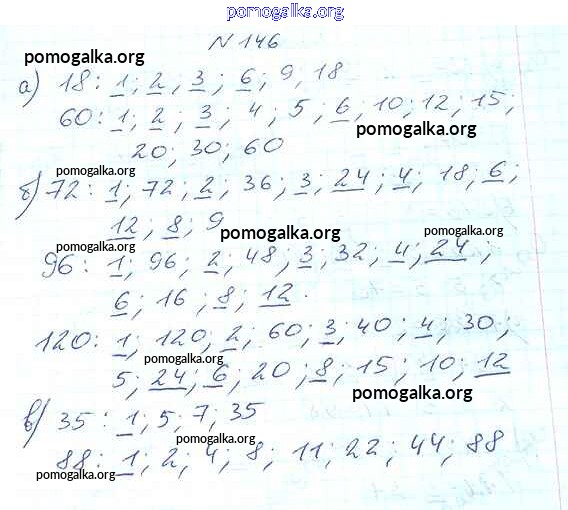 pomogalka.org
N 146
pomogalka.org
а) 18: 1; 2; 3; 6; 9; 18
60: 1; 2; 3; 4; 5; 6; 10; 12; 15;
pomogalka.org
20; 30; 60
pomogalka.org
б) 72: 1; 72; 2; 36; 3; 24; 4; 18; 6;
12; 8; 9
pomogalka.org
pomogalka.org
pomogalka.org
96: 1; 96; 2; 48; 3; 32; 4; 24;
6; 16; 8; 12.
120: 1; 120; 2; 60; 3; 40; 4; 30;
pomogalka.org
5; 24; 6; 20; 8; 15; 10; 12
pomogalka.org
в) 35: 1; 5; 7; 35
pomogalka.org
88: 1; 2; 4; 8; 11; 22; 44; 88
pomogalka.org